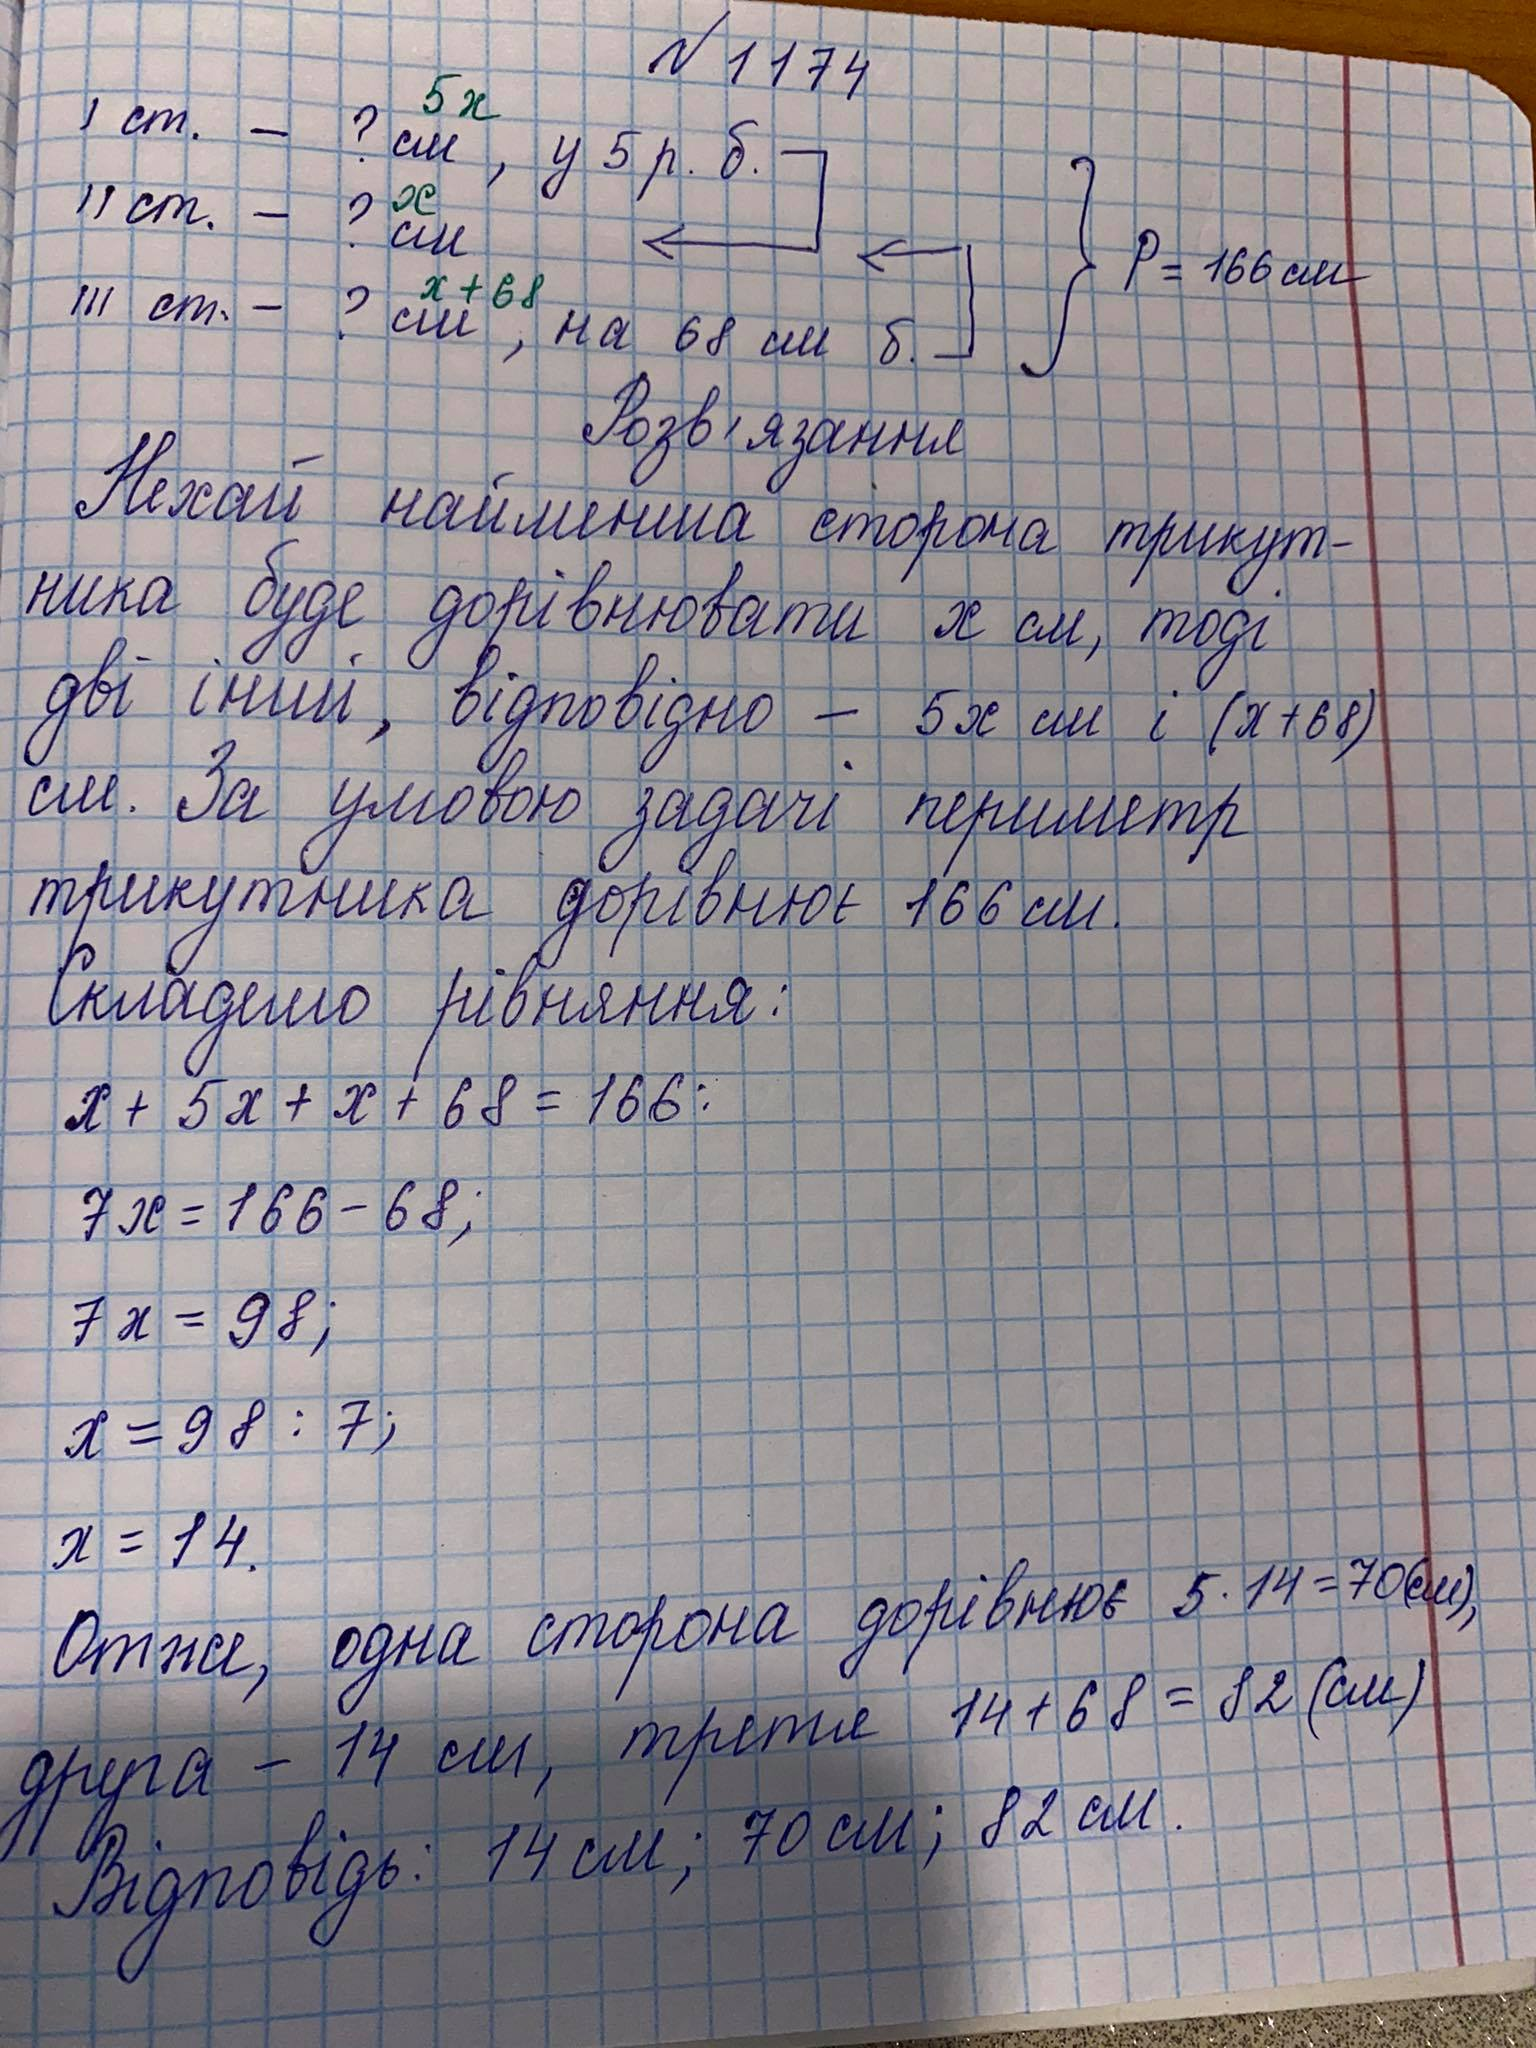 № 1174
I ст. – ? см, у 5 р. б.
5x
II ст. – ? см
x
III ст. – ? см, на 68 см б.
x + 68
P = 166 см
Розв'язання
Нехай найменша сторона трикут-
ника буде дорівнювати x см, тоді
дві інші, відповідно – 5x см і (x+68)
см. За умовою задачі периметр
трикутника дорівнює 166 см.
Складемо рівняння:
x + 5x + x + 68 = 166:
7x = 166 – 68;
7x = 98;
x = 98 : 7;
x = 14.
Отже, одна сторона дорівнює 5 · 14 = 70(см),
друга – 14 см, третя 14 + 68 = 82 (см)
Відповідь: 14 см; 70 см; 82 см.